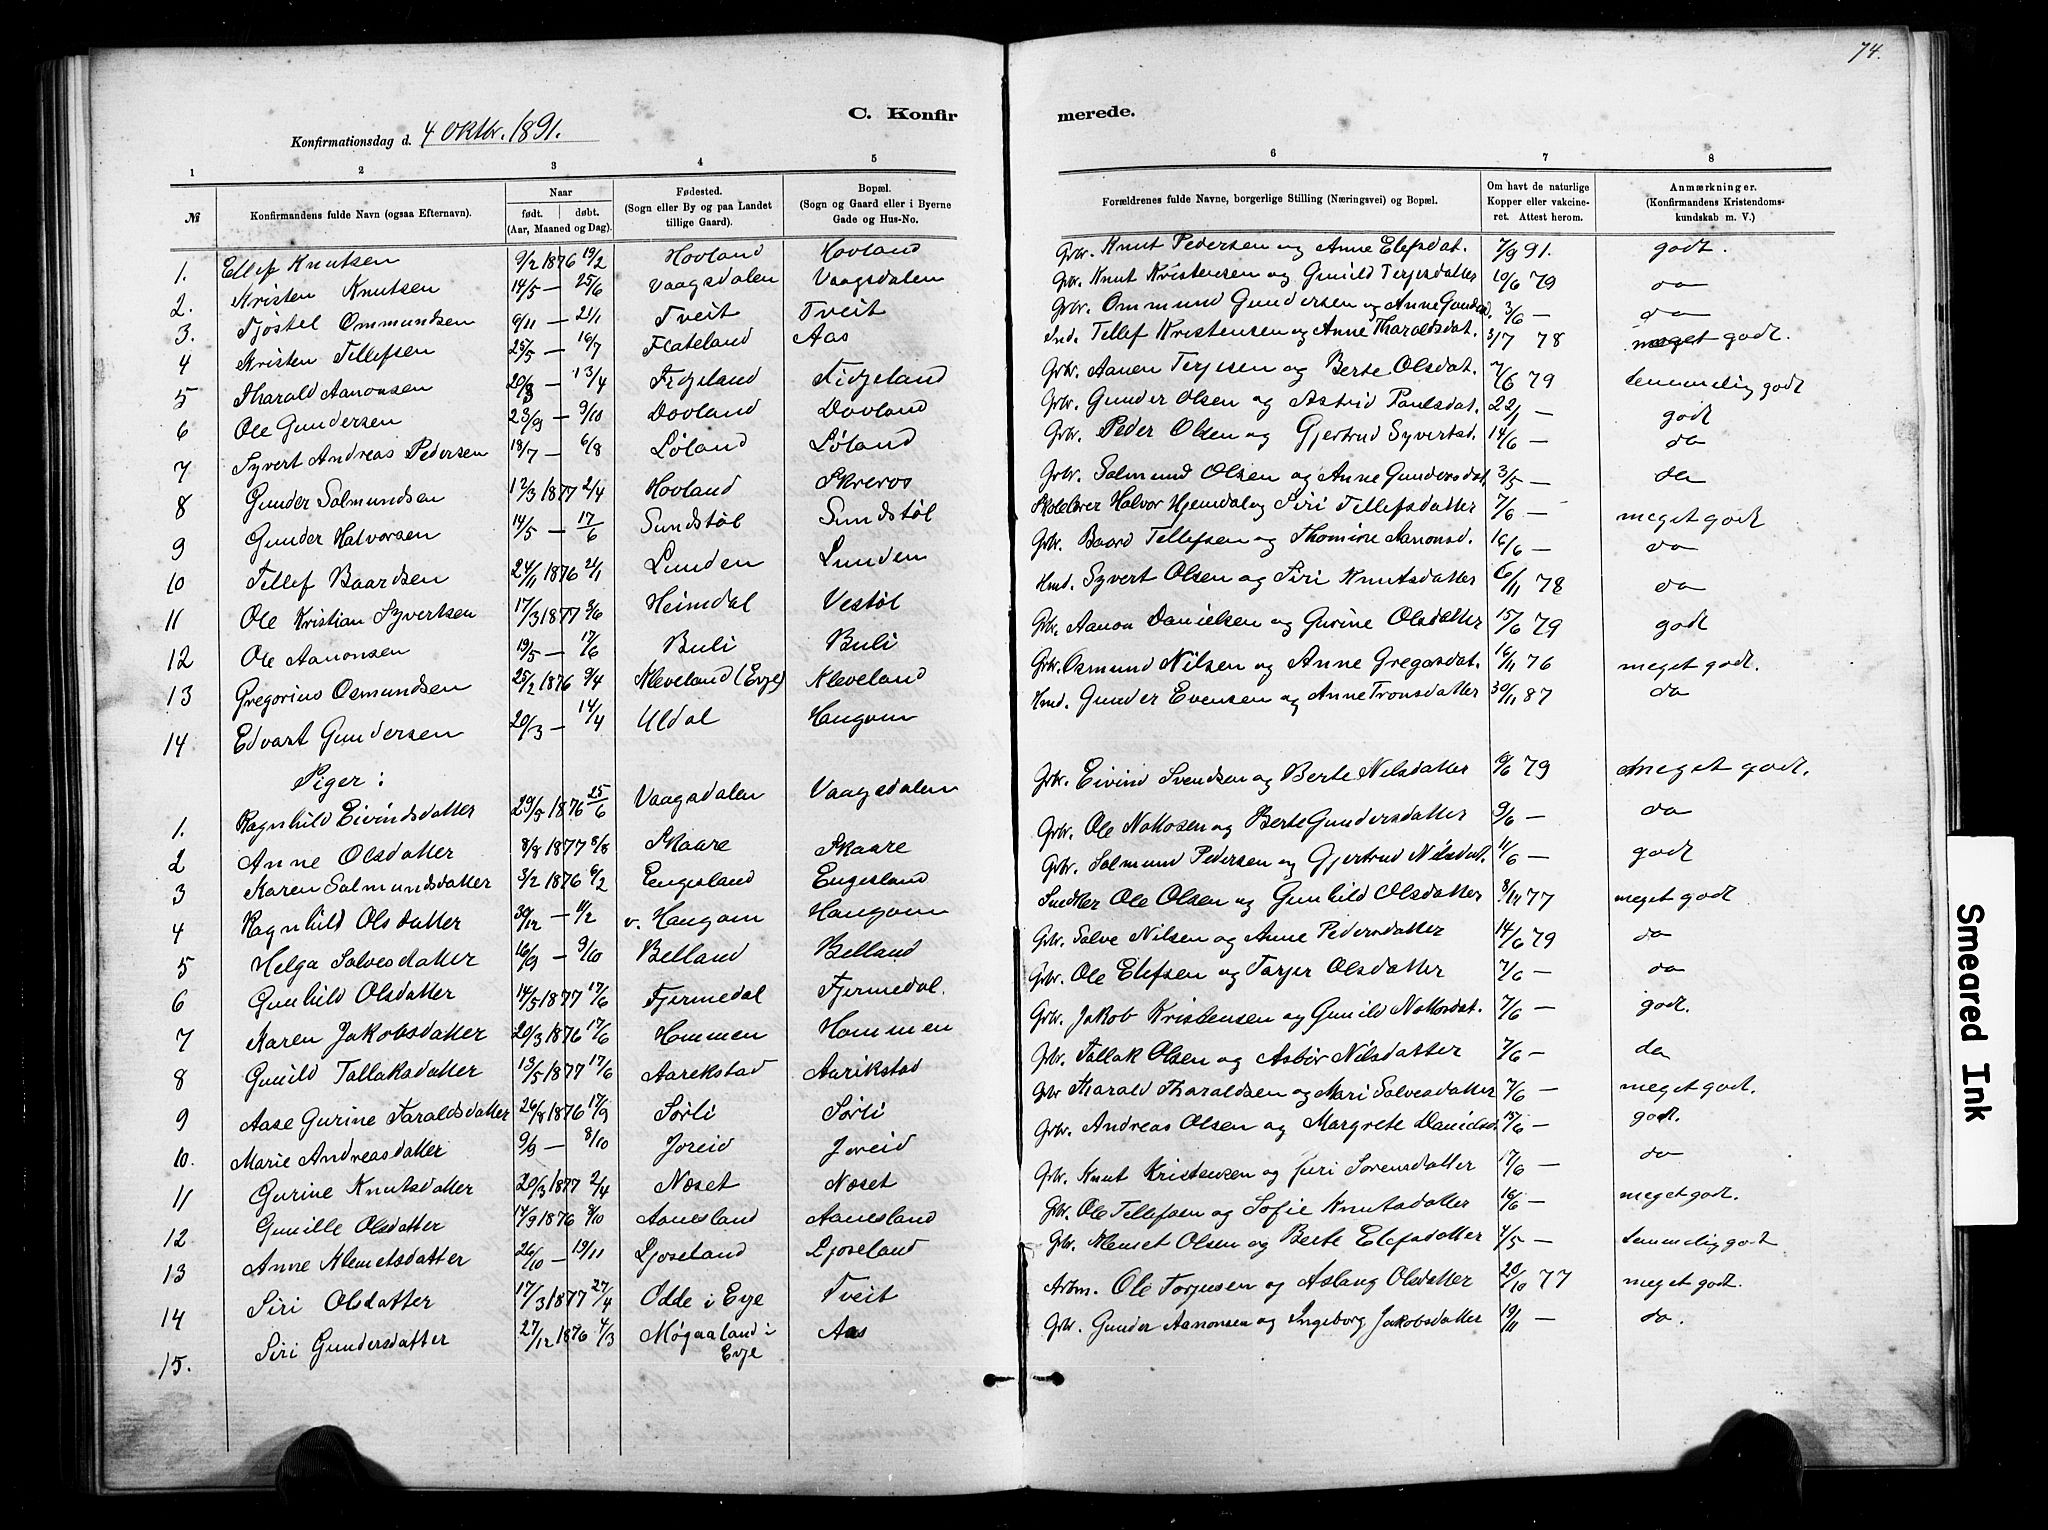 74.
C. Konfirmerede.
Konfirmationsdag d. 4 Oktbr. 1891.
1 2 3 4 5 6 7 8
№ Konfirmandens fulde Navn (ogsaa Efternavn). Naar født. døbt. (Aar, Maaned og Dag). Fødested. (Sogn eller By og paa Landet tillige Gaard). Bopæl. (Sogn og Gaard eller i Byerne Gade og Hus-No. Forældrenes fulde Navne, borgerlige Stilling (Næringsvei) og Bopæl. Om havt de naturlige Kopper eller vakcineret. Attest herom. Anmærkninger. (Konfirmandens Kristendomskundskab m. V.)
1. Ellef Knutsen 9/2 1876 19/2 Hovland Hovland Grbr. Knut Pedersen og Anne Elefsdat. 7/9 91. godt.
2. Kristen Knutsen 14/5 — 25/6 Vaagsdalen Vaagsdalen Grbr. Knut Kristensen og Gunild Terjesdatter 10/6 79 do
3. Tjøstel Ommundsen 9/11 — 21/1 Tveit Tveit Grbr. Ommund Gundersen og Anne Gundsd. 3/6 — do
4 Kristen Tellefsen 25/5 — 16/7 Flateland Aas Ind. Tellef Kristensen og Anne Tharaldsdat. 3/7 78 meget godt.
5 Tharald Aanonsen 20/3 — 13/4 Fidjeland Fidjeland Grbr. Aanen Terjesen og Berte Olsdat. 7/6 79 temmelig godt
6 Ole Gundersen 23/9 — 9/10 Dovland Dovland Grbr. Gunder Olsen og Astrid Paulsdat. 22/1 — godt
7 Syvert Andreas Pedersen 18/7 — 6/8 Løland Løland Grbr. Peder Olsen og Gjertrud Syvertsd. 14/6 — do
8 Gunder Salmundsen 12/3 1877 2/4 Hovland Skreros Grbr. Salmund Olsen og Anne Gundersdat. 3/5 — do
9 Gunder Halvorsen 14/5 — 17/6 Sundstøl Sundstøl Skolelærer Halvor Hjemdal og Siri Tellefsdatter 7/6 — meget godt
10 Tellef Baardsen 24/11 1876 21/1 Lunden Lunden Grbr. Baard Tellefsen og Thomine Aanonsd. 16/6 — do
11 Ole Kristian Syvertsen 17/3 1877 3/6 Heimdal Vestøl Hmd. Syvert Olsen og Siri Knutsdatter 6/11 78 do
12 Ole Aanonsen 19/5 — 17/6 Buli Buli Grbr. Aanon Danielsen og Gurine Olsdatter 15/6 79 godt
13 Gregorius Osmundsen 25/2 1876 9/4 Kleveland (Evje) Kleveland Grbr. Osmund Nilsen og Anne Gregasdat. 16/11 76 meget godt.
14 Edvart Gundersen 20/3 — 14/4 Uldal Haugom Hmd. Gunder Evensen og Anne Tronsdatter 30/11 87 do
Piger:
1. Ragnhild Eivindsdatter 29/5 1876 25/6 Vaagsdalen Vaagsdalen Grbr. Eivind Svendsen og Berte Nilsdatter 9/6 79 meget godt.
2 Anne Olsdatter 8/8 1877 5/8 Skaare Skaare Grbr. Ole Nottosen og Berte Gundersdatter 9/6 — do
3 Karen Salmundsdatter 3/2 1876 6/2 Engesland Engesland Grbr. Salmund Pedersen og Gjertrud Nilsdat. 11/6 — godt
4 Ragnhild Olsdatter 30/12 — 11/2 v. Haugom Haugom Snedker Ole Olsen og Gunhild Olsdatter 8/11 77 meget godt
5 Helga Salvesdatter 16/9 — 9/10 Belland Belland Grbr. Salve Nilsen og Anne Pedersdatter 14/6 79 do
6 Gunhild Olsdatter 14/5 1877 17/6 Fjermedal Fjermedal. Grbr. Ole Elefsen og Tarjer Olsdatter 7/6 — do
7 Karen Jakobsdatter 20/3 1876 17/6 Hommen Hommen Grbr. Jakob Kristensen og Gunild Nottosdat. 7/6 — godt.
8 Gunild Tallaksdatter 13/5 1877 17/6 Aarekstad Aarikstad Grbr. Tallak Olsen og Asbør Nilsdatter 7/6 — do
9 Aase Gurine Taraldsdatter 26/8 1876 17/9 Sørli Sørli Grbr Tharald Tharaldsen og Mari Salvesdatter 7/6 — meget godt.
10. Marie Andreasdatter 9/9 — 8/10 Joreid Joreid Grbr. Andreas Olsen og Margrete Danielsd. 15/6 — godt.
11 Gurine Knutsdatter 20/3 1877 2/4 Næset Næset Grbr. Knut Kristensen og Juri Sørensdatter 17/6 — do
12 Gunille Olsdatter 14/9 1876 8/10 Aanesland Aanesland Grbr. Ole Tellefsen og Sofie Knutsdatter 16/6 — meget godt.
13 Anne Klemetsdatter 26/10 — 19/11 Ljoseland Ljoseland Grbr. Klemet Olsen og Berte Elefsdatter 4/5 — temmelig godt
14 Siri Olsdatter 17/3 1877 27/4 Odde i Evje Tveit Arbm. Ole Torjusen og Aslaug Olsdatter 20/10 77 meget godt.
15. Siri Gundersdatter 27/12 1876 4/3 Møgaaland i Evje Aas Grbr. Gunder Aanonsen og Ingeborg Jakobsdatter 19/11 — do.
Smeared Ink